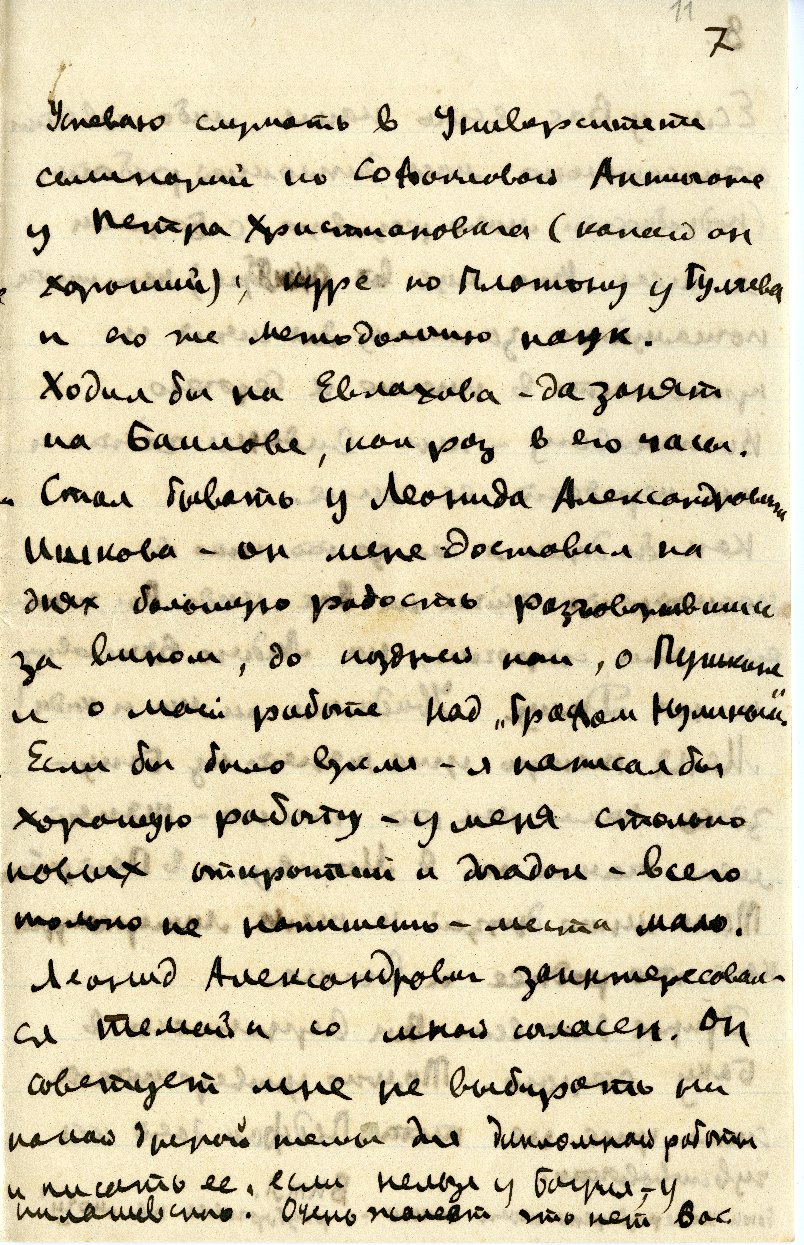 11
7
Успеваю слушать в Университете
семинарий по Софокловой Антигоне
у Петра Христиановича (какой он
хороший), курс по Платону у Гуляева
и его же методологию наук.
Ходил бы на Евлахова – да занят
на Баилове, как раз в его часы.
Стал бывать у Леонида Александровича
Ишкова – он мне доставил на
днях большую радость разговорившись
за вином, до поздней ночи, о Пушкине
и о моей работе над „Графом Нулиным“
Если бы было время – я написал бы
хорошую работу – у меня столько
новых открытий и догадок – всего
только не напишешь – места мало.
Леонид Александрович заинтересовал-
ся темой и со мной согласен. Он
советует мне не выбирать ни
какой другой темы для дипломной работы
и писать ее, если нельзя у Багрия, – у
Очень жалеет что нет Вас